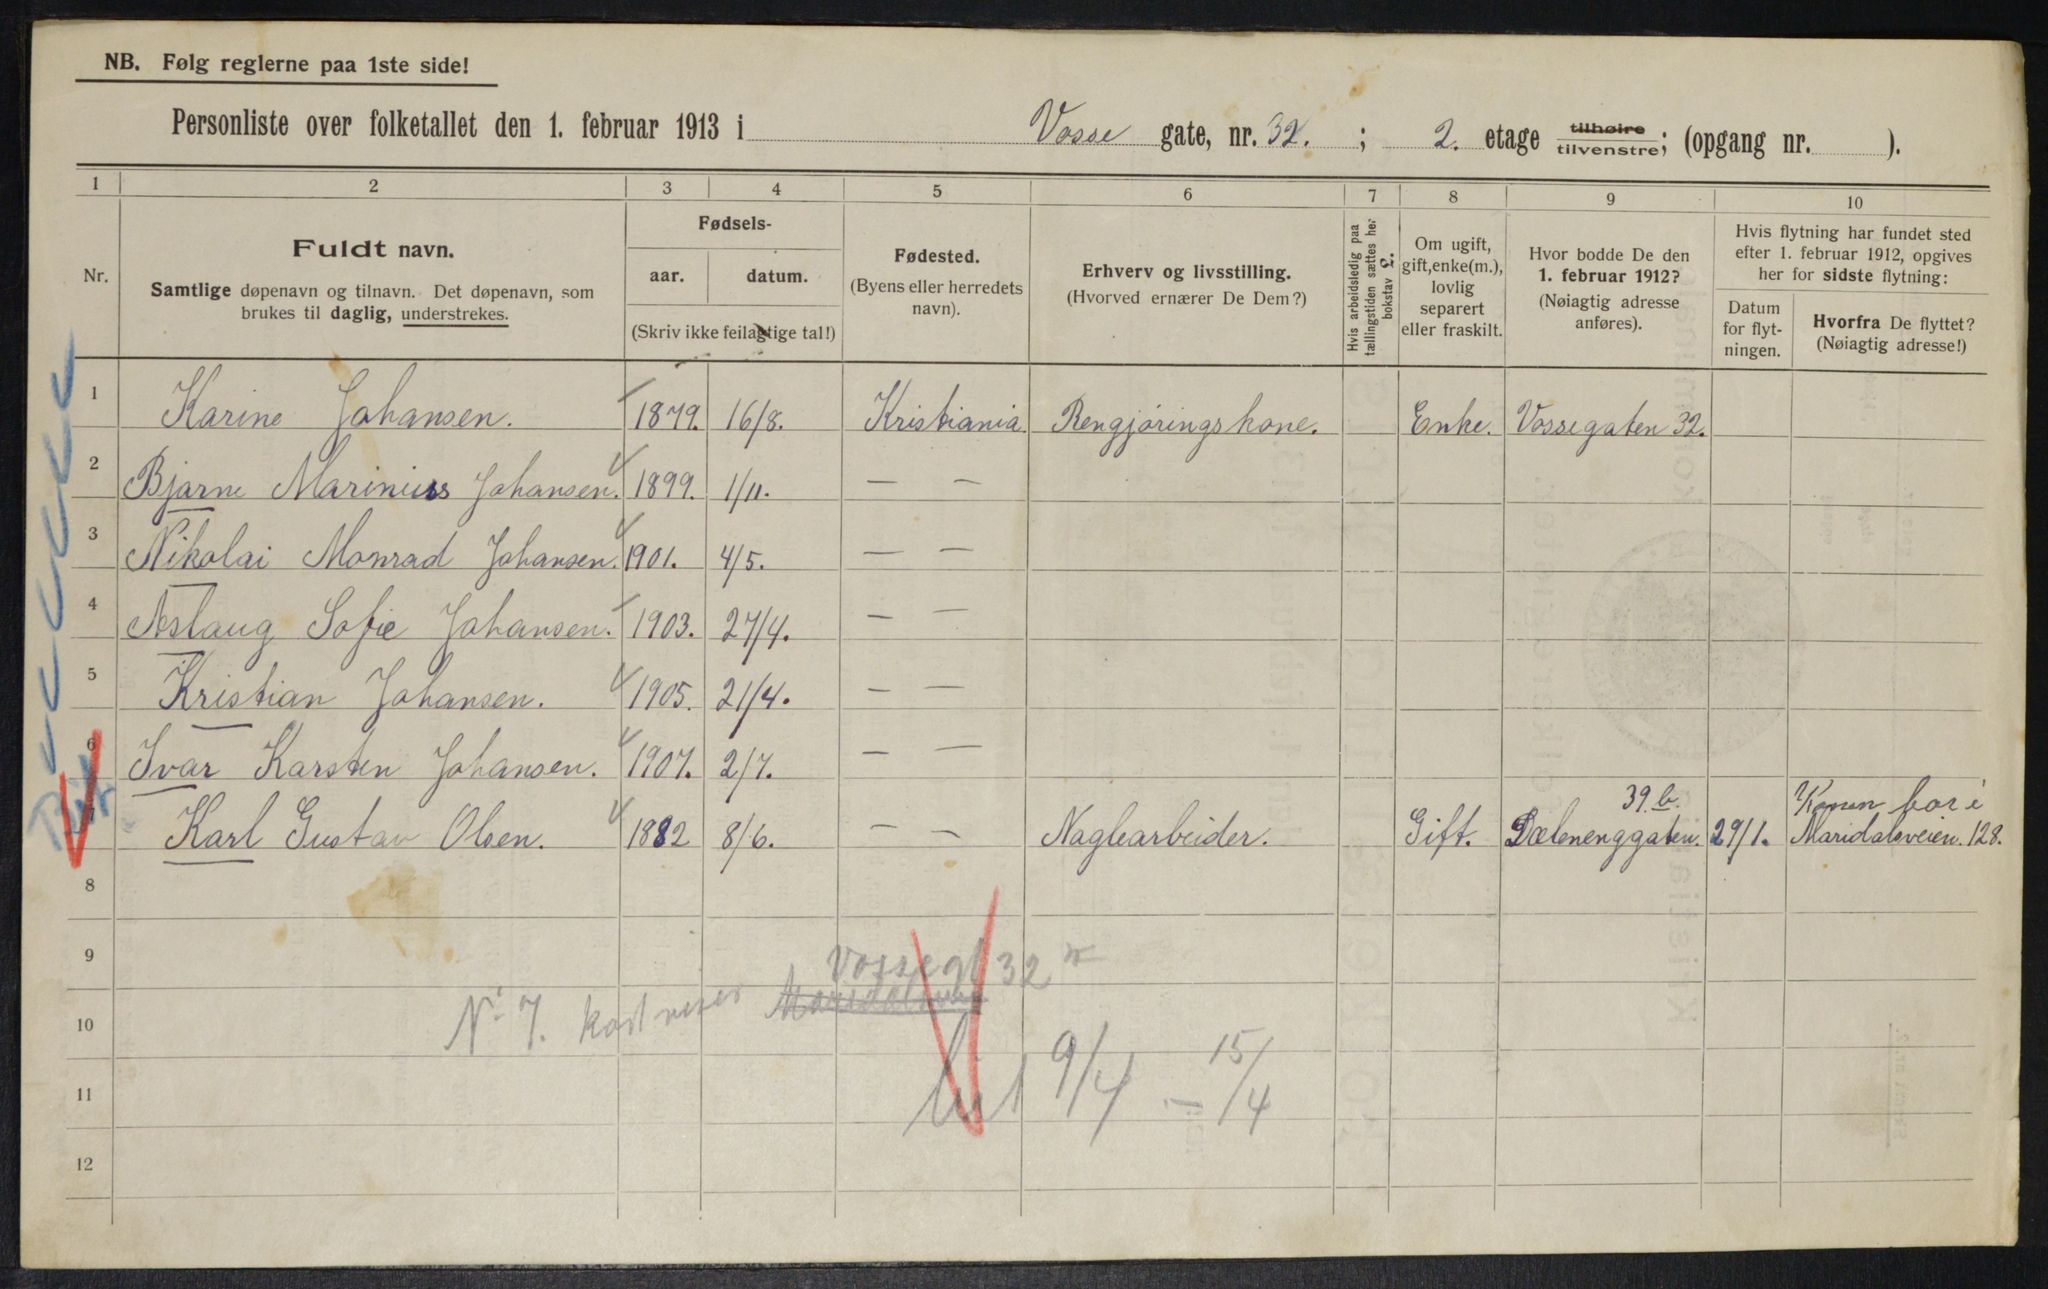 NB. Følg reglerne paa 1ste side!
Personliste over folketallet den 1. februar 1913 i Vosse gate, nr. 32. ; 2. etage tilhøire tilvenstre; (opgang nr. ).
1 2 3 4 5 6 7 8 9 10
Nr.
Fuldt navn.
Samtlige døpenavn og tilnavn. Det døpenavn, som
brukes til daglig, understrekes.
Fødsels-
aar. datum.
(Skriv ikke feilagtige tal!)
Fødested.
(Byens eller herredets
navn).
Erhverv og livsstilling.
(Hvorved ernærer De Dem?)
Hvis arbeidsledig paa
tællingstiden sættes her
bokstav L.
Om ugift,
gift, enke(m.),
lovlig
separert
eller fraskilt.
Hvor bodde De den
1. februar 1912?
(Nøiagtig adresse
anføres).
Hvis flytning har fundet sted
efter 1. februar 1912, opgives
her for sidste flytning:
Datum
for flyt-
ningen.
Hvorfra De flyttet?
(Nøiagtig adresse!)
1 Karine Johansen. 1879. 16/8. Kristiania. Rengjøringskone. Enke. Vossegaten 32.
2 Bjarne Marinius Johansen. 1899. 1/11. — —
3 Nikolai Monrad Johansen. 1901. 4/5. — —
4 Aslaug Sofie Johansen. 1903. 27/4. — —
5 Kristian Johansen. 1905. 21/4. — —
6 Ivar Karsten Johansen. 1907. 2/7. — —
39.b. Konen bor i
7 Karl Gustav Olsen. 1882 8/6. — — Naglearbeider. Gift. Dælenenggaten. 29/1. Maridalsveien. 128.
8
9
Vossegt 32
10
No 7. kort viser Maridalsveien
11
9/4 – 15/4
12